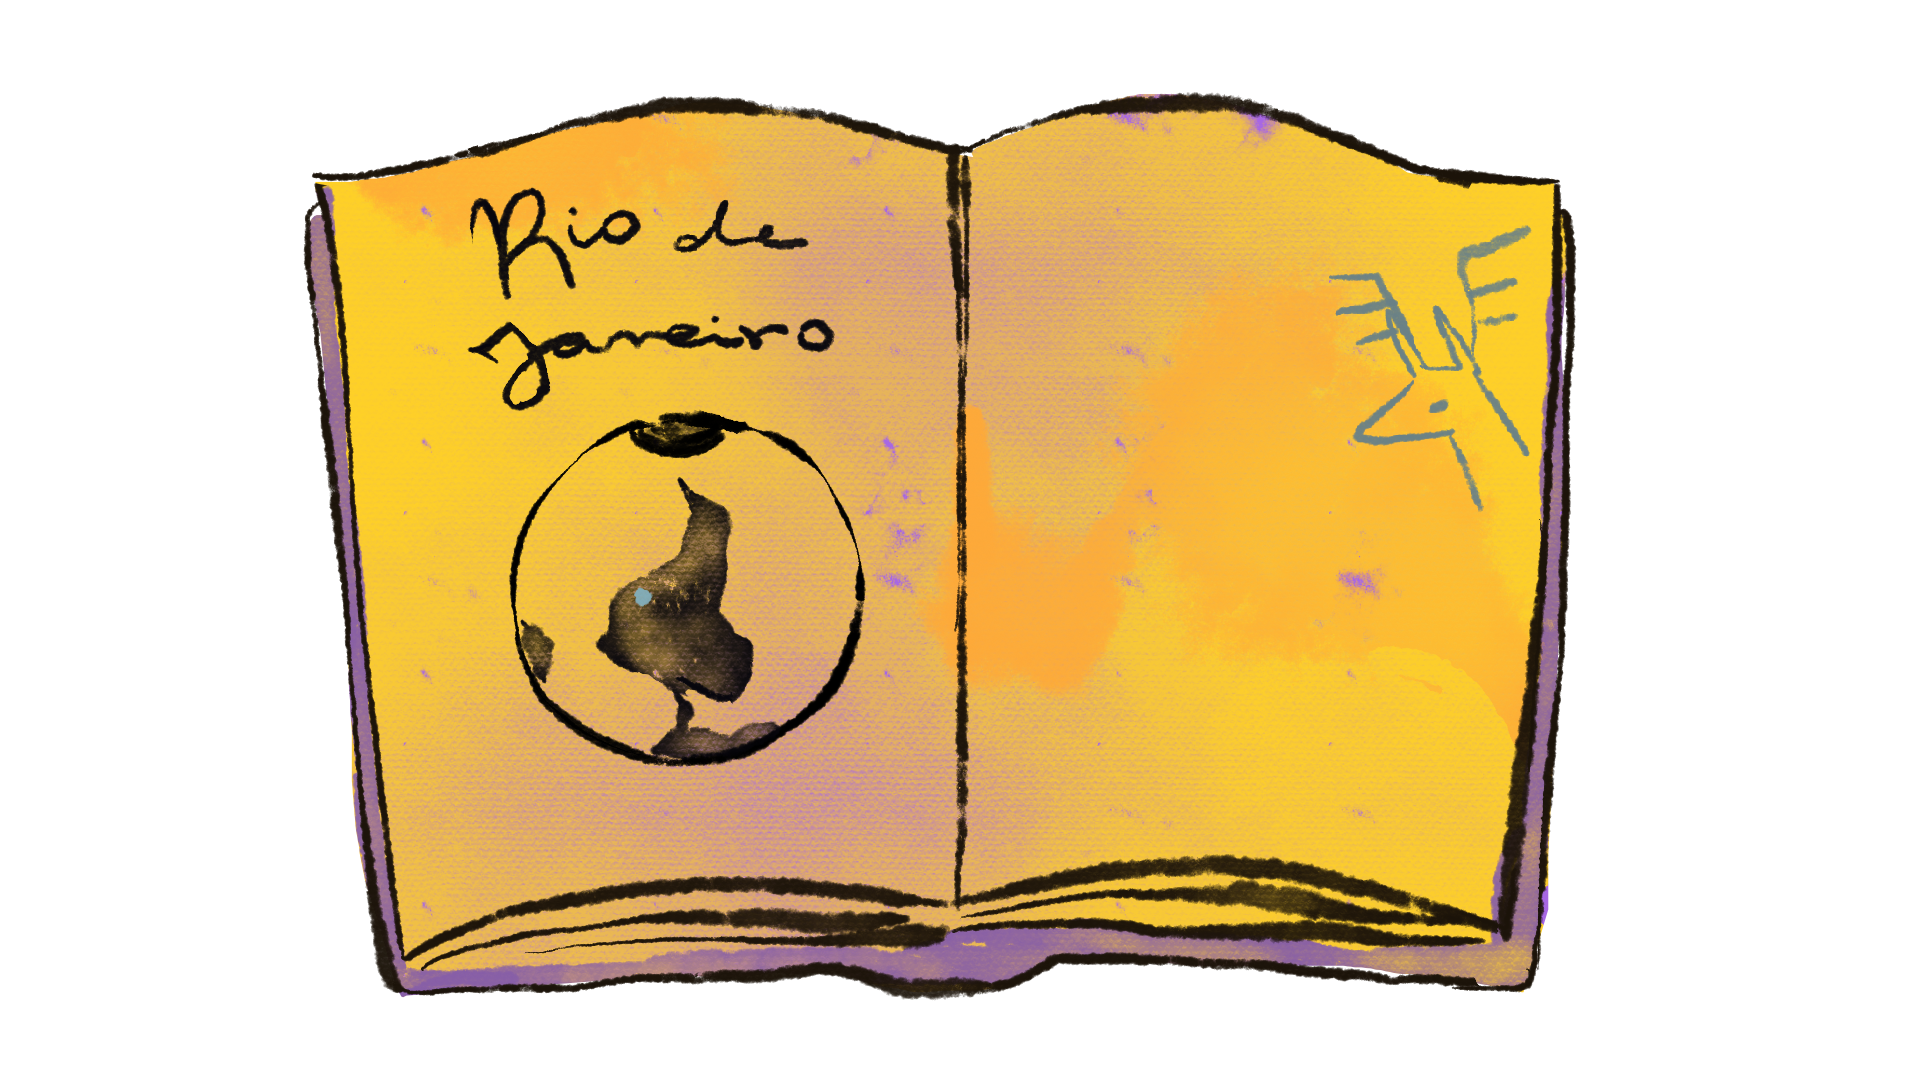 Rio de
Janeiro